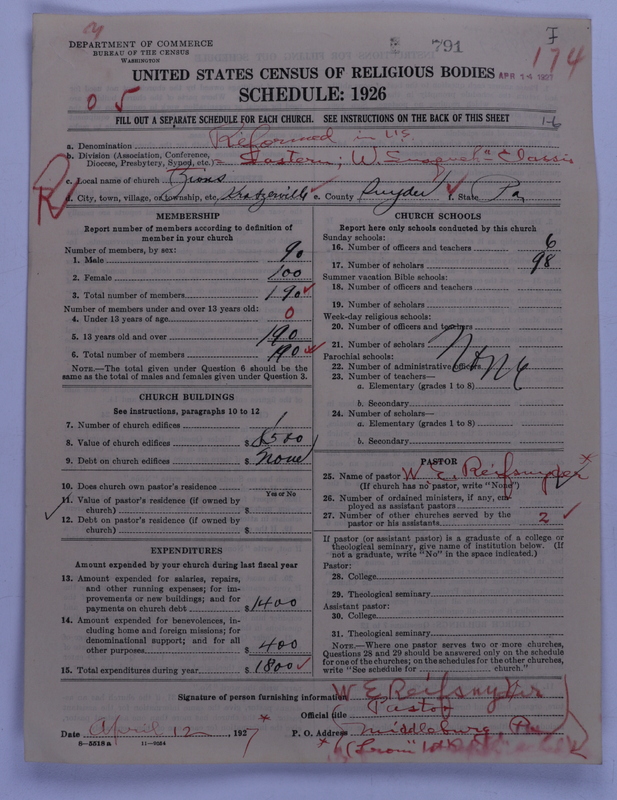 DEPARTMENT OF COMMERCE
BUREAU OF THE CENSUS
WASHINGTON
791
174
APR 14 1927
UNITED STATES CENSUS OF RELIGIOUS BODIES
SCHEDULE: 1926
0 5
FILL OUT A SEPARATE SCHEDULE FOR EACH CHURCH. SEE INSTRUCTIONS ON THE BACK OF THIS SHEET
1-6
a. Denomination Reformed in U.S.
b. Division (Association, Conference, Diocese, Presbytery, Synod, etc.) Eastern; W. Susqueh" Classis
c. Local name of church Zions
d. City, town, village, or township, etc. Kratzerville e. County Snyder f. State Pa
MEMBERSHIP
Report number of members according to definition of member in your church
Number of members, by sex:
1. Male 90
2. Female 100
3. Total number of members 190
Number of members under and over 13 years old:
4. Under 13 years of age 0
5. 13 years old and over 190
6. Total number of members 190
NOTE.—The total given under Question 6 should be the same as the total of males and females given under Question 3.
CHURCH BUILDINGS
See instructions, paragraphs 10 to 12
7. Number of church edifices 1
8. Value of church edifices $ 6500
9. Debt on church edifices $ None
10. Does church own pastor's residence
Yes or No
11. Value of pastor's residence (if owned by church) $
12. Debt on pastor's residence (if owned by church) $
EXPENDITURES
Amount expended by your church during last fiscal year
13. Amount expended for salaries, repairs, and other running expenses; for improvements or new buildings; and for payments on church debt $ 1400
14. Amount expended for benevolences, including home and foreign missions; for denominational support; and for all other purposes $ 400
15. Total expenditures during year $ 1800
CHURCH SCHOOLS
Report here only schools conducted by this church
Sunday schools:
16. Number of officers and teachers 6
17. Number of scholars 98
Summer vacation Bible schools:
18. Number of officers and teachers
19. Number of scholars
Week-day religious schools:
20. Number of officers and teachers
21. Number of scholars
None
Parochial schools:
22. Number of administrative officers
23. Number of teachers—
a. Elementary (grades 1 to 8)
b. Secondary
24. Number of scholars—
a. Elementary (grades 1 to 8)
b. Secondary
PASTOR
25. Name of pastor W E. Reifsnyder *
(If church has no pastor, write "None")
26. Number of ordained ministers, if any, employed as assistant pastors
27. Number of other churches served by the pastor or his assistants 2
If pastor (or assistant pastor) is a graduate of a college or theological seminary, give name of institution below. (If not a graduate, write "No" in the space indicated.)
Pastor:
28. College
29. Theological seminary
Assistant pastor:
30. College
31. Theological seminary
NOTE.—Where one pastor serves two or more churches, Questions 28 and 29 should be answered only on the schedule for one of the churches; on the schedules for the other churches, write "See schedule for church."
Signature of person furnishing information W E Reifsnyder
Official title Pastor
Date April 12, 1927 * P. O. Address Middleburg, Pa
8-5518 a 11-9584